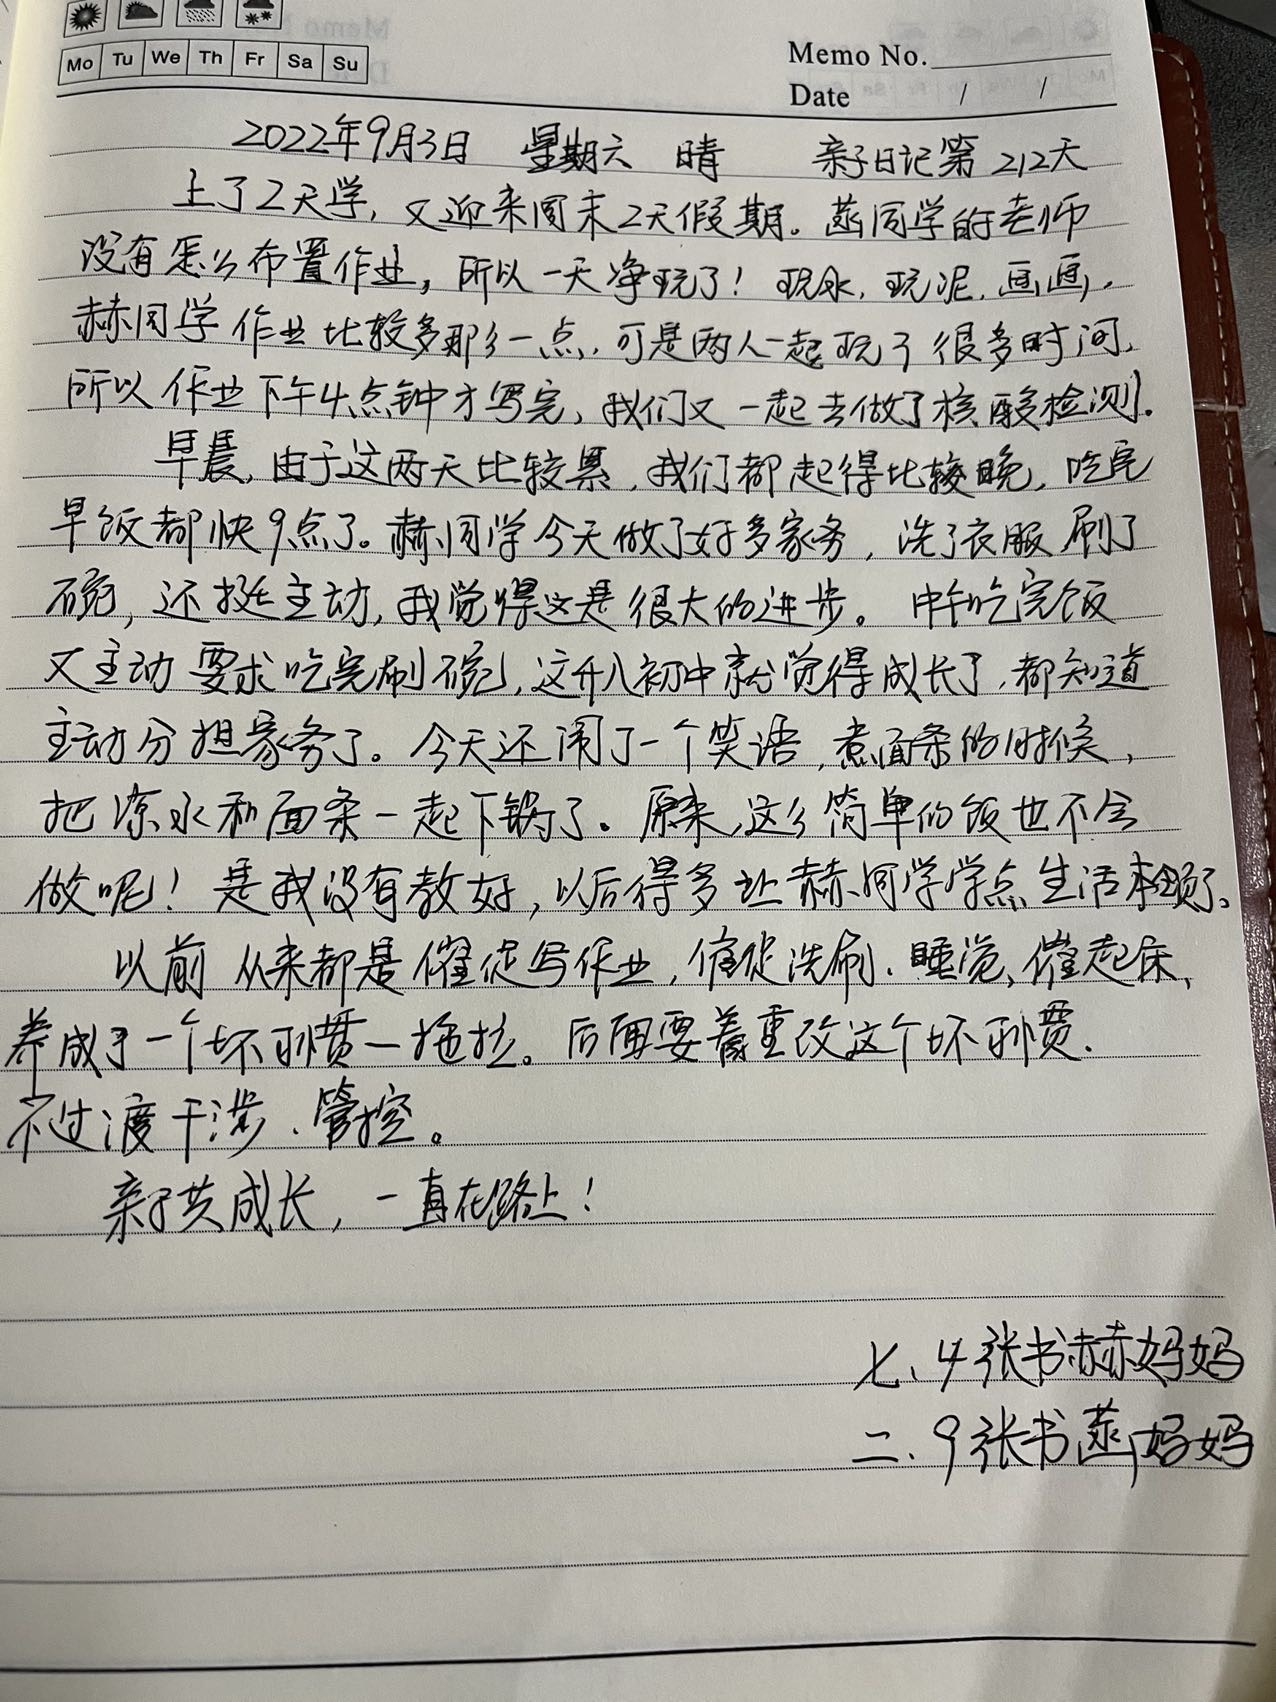 Mo Tu We Th Fr Sa Su
Memo No.
Date / /
2022年9月3日 星期六 晴 亲子日记第212天
上了2天学，又迎来周末2天假期。菡同学的老师
没有怎么布置作业，所以一天净玩了！玩水，玩泥，画画，
赫同学作业比较多那么一点，可是两人一起玩了很多时间，
所以作业下午4点钟才写完，我们又一起去做了核酸检测。
早晨，由于这两天比较累，我们都起得比较晚，吃完
早饭都快9点了。赫同学今天做了好多家务，洗了衣服刷了
碗，还挺主动，我觉得这是很大的进步。中午吃完饭
又主动要求吃完刷碗，这升入初中就觉得成长了，都知道
主动分担家务了。今天还闹了一个笑话，煮面条的时候，
把凉水和面条一起下锅了。原来，这么简单的饭也不会
做呢！是我没有教好，以后得多让赫同学学点生活本领了。
以前从来都是催促写作业，催促洗刷、睡觉、催起床，
养成了一个坏习惯一拖拉。后面要着重改这个坏习惯.
不过渡干涉、管控。
亲子共成长，一直在路上！
七、4张书赫妈妈
二、9张书菡妈妈